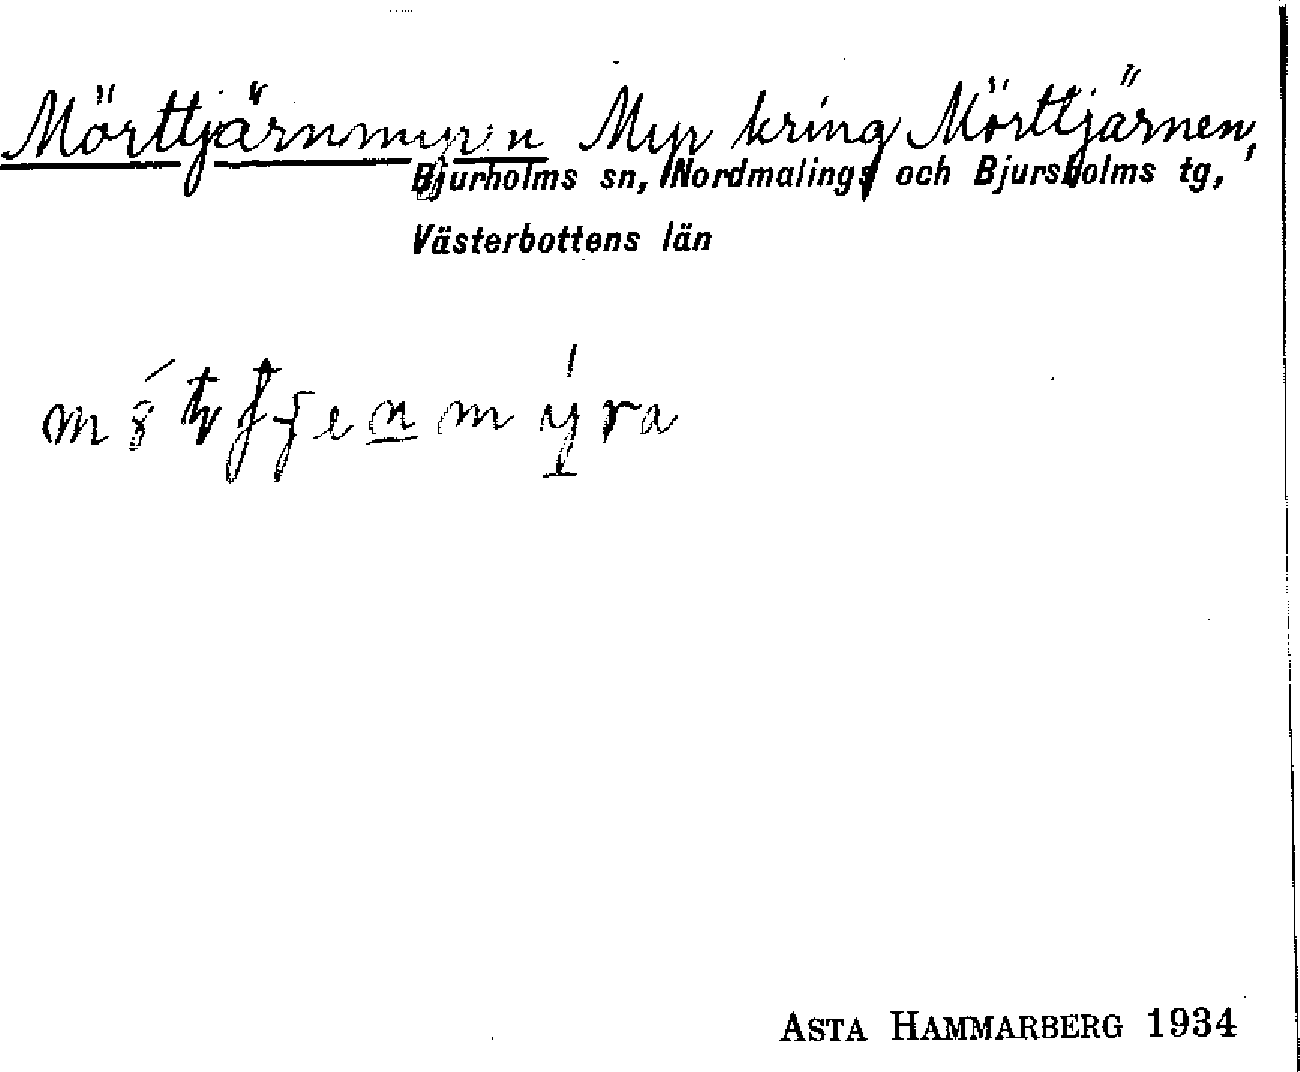 Mörttjärnmyrn Myr kring Mörttjärnen,
Bjurholms sn, Nordmalings och Bjursholms tg,
Västerbottens län
ASTA HAMMARBERG 1934